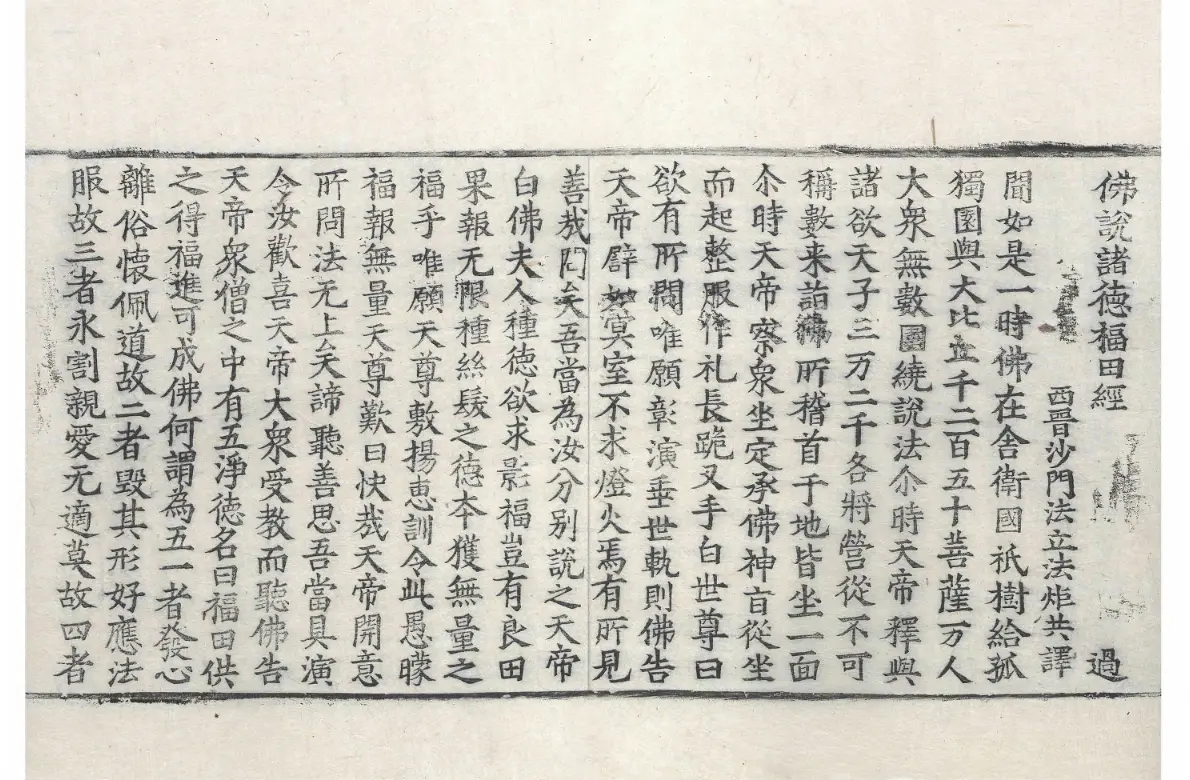 佛說諸德福田經 過
西晉沙門法立法炬共譯
聞如是一時佛在舍衛國祇樹給孤
獨園與大比丘千二百五十菩薩万人
大衆無數圍繞說法尒時天帝釋與
諸欲天子三万二千各將營從不可
稱數来詣佛所稽首于地皆坐一面
尒時天帝察衆坐定承佛神旨從坐
而起整服作礼長跪叉手白世尊曰
欲有所問唯願彰演垂世軌則佛告
天帝辟如冥室不求燈火焉有所見
善㢤問矣吾當為汝分别說之天帝
白佛夫人種德欲求影福豈有良田
果報无限種絲髮之德夲獲無量之
福乎唯願天尊敷揚恵訓令此愚曚
福報無量天尊歎曰快㢤天帝開意
所問法无上矣諦聽善思吾當具演
令汝歡喜天帝大衆受教而聽佛告
天帝衆僧之中有五淨德名曰福田供
之得福進可成佛何謂為五一者發心
離俗懷佩道故二者毀其形好應法
服故三者永割親愛无適莫故四者